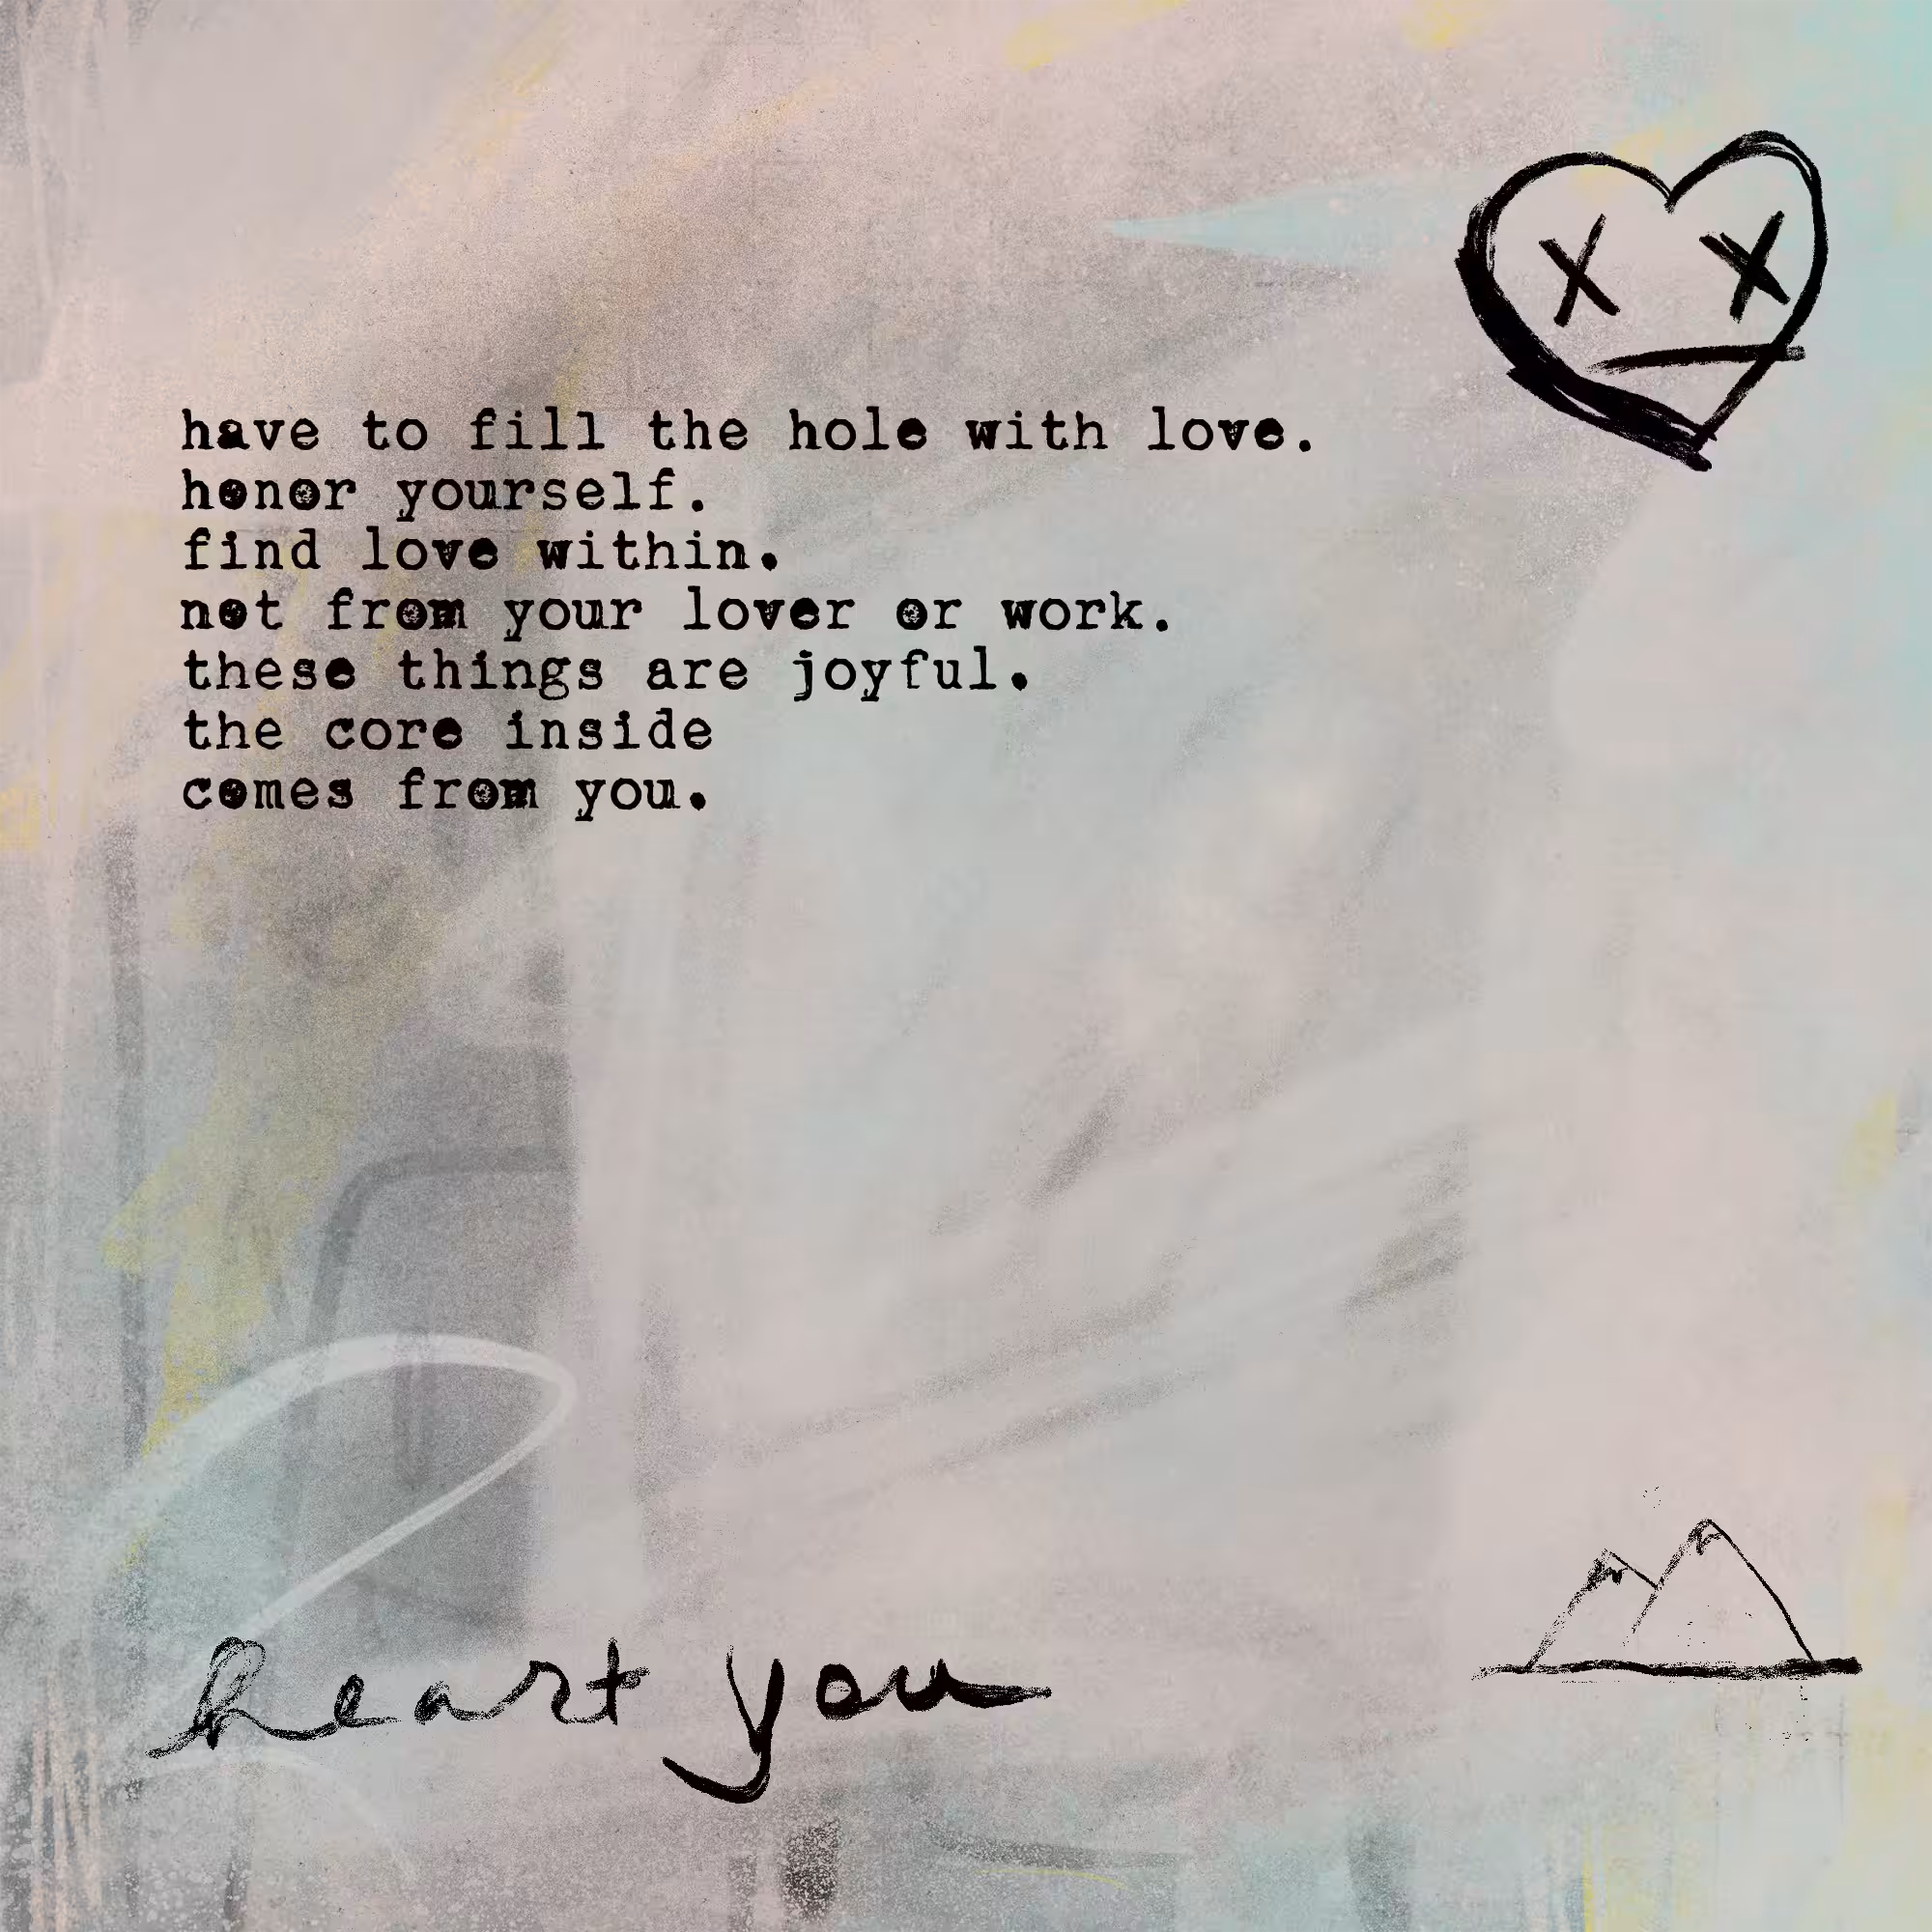 have to fill the hole with love.
honor yourself.
find love within.
not from your lover or work.
these things are joyful.
the core inside
comes from you.
heart you